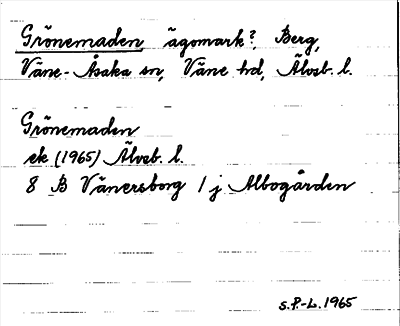 Grönemaden ägomark?, Berg,
Väne-Åsaka sn, Väne hd, Älvsb. l.
Grönemaden
ek (1965) Älvsb. l.
8 B Vänersborg 1 j Albogården
S.P.-L. 1965